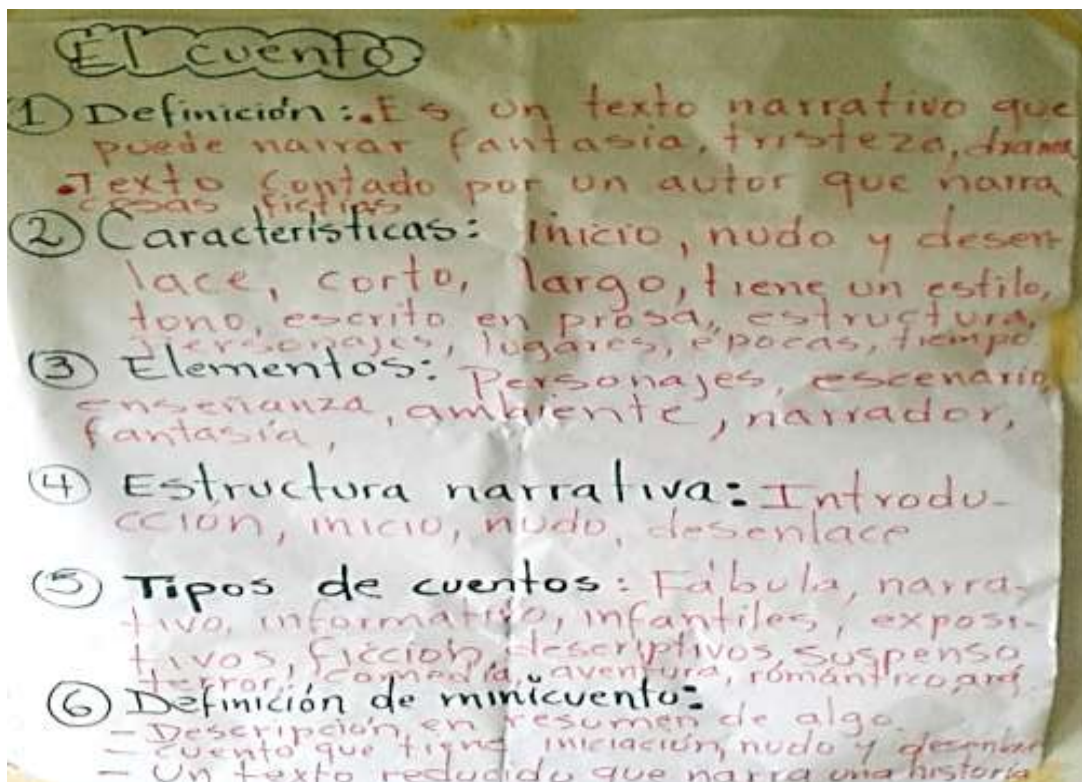 El cuento
① Definición: • Es un texto narrativo que
puede narrar fantasía, tristeza, drama
• Texto contado por un autor que narra
cosas fictias
② Características: inicio, nudo y desen-
lace, corto, largo, tiene un estilo,
tono, escrito en prosa, estructura,
personajes, lugares, epocas, tiempo
③ Elementos: Personajes, escenario,
enseñanza, ambiente, narrador,
fantasía,
④ Estructura narrativa: Introdu-
cción, inicio, nudo, desenlace
⑤ Tipos de cuentos: Fábula, narra-
tivo, informativo, infantiles, exposi-
tivos, ficción, descriptivos, suspenso
terror, comedia, aventura, romántico,
⑥ Definición de minicuento:
- Descripción en resumen de algo.
- Cuento que tiene iniciación, nudo y
- Un texto reducido que narra una historia